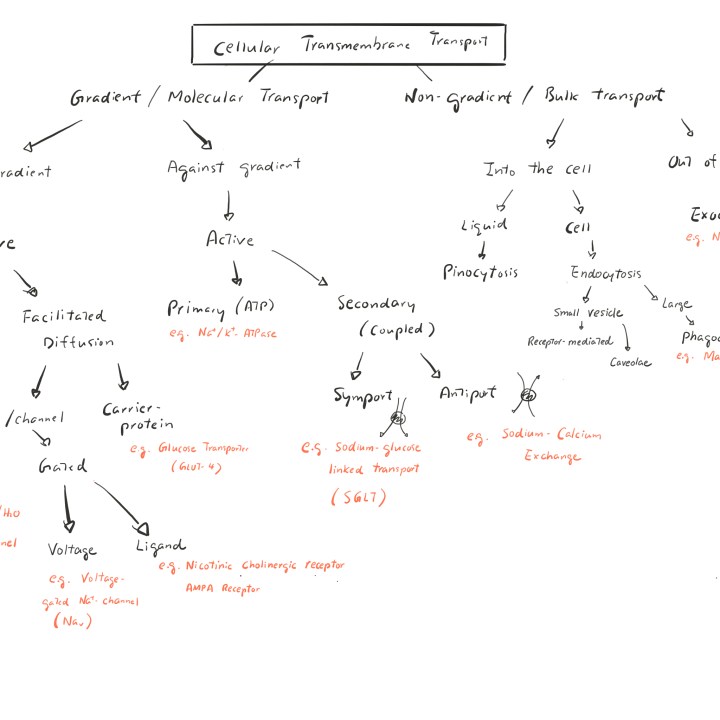 Cellular Transmembrane Transport
Gradient / Molecular Transport
Non-gradient / Bulk transport
Against gradient
Into the cell
Out of
Active
Liquid
Cell
e.g. N
Pinocytosis
Endocytosis
Facilitated
Diffusion
Primary (ATP)
e.g. Na⁺/K⁺- ATPase
Secondary
(Coupled)
Small vesicle
Large
Receptor-mediated
Caveolae
e.g. Ma
/channel
Carrier-
protein
e.g. Glucose Transporter
(GLUT-4)
Symport
e.g. Sodium-glucose
linked transport
(SGLT)
Antiport
e.g. Sodium-Calcium
Exchange
Gated
/H₂O
Voltage
e.g. Voltage-
gated Na⁺-channel
(Naᵥ)
Ligand
e.g. Nicotinic Cholinergic receptor
AMPA Receptor